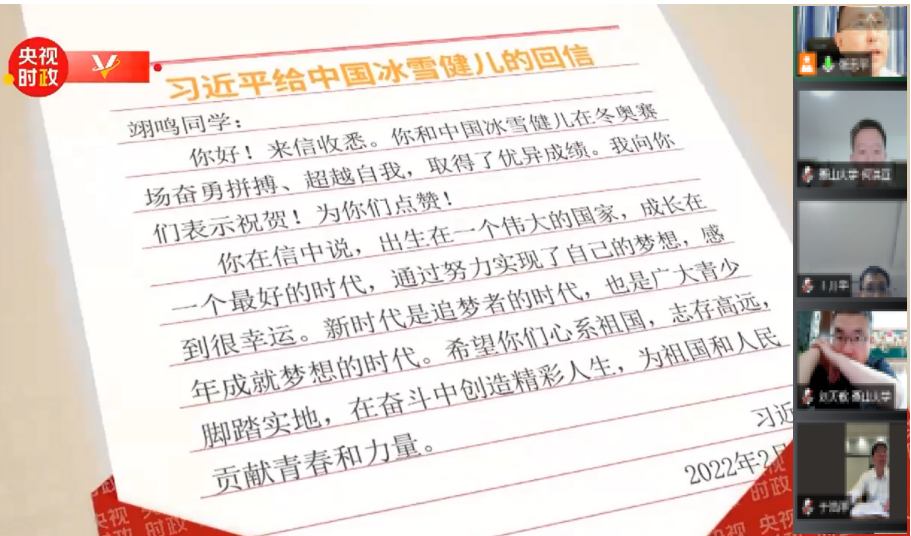 央视
时政
习近平给中国冰雪健儿的回信
翊鸣同学：
你好！来信收悉。你和中国冰雪健儿在冬奥赛
场奋勇拼搏、超越自我，取得了优异成绩。我向你
们表示祝贺！为你们点赞！
你在信中说，出生在一个伟大的国家，成长在
一个最好的时代，通过努力实现了自己的梦想，感
到很幸运。新时代是追梦者的时代，也是广大青少
年成就梦想的时代。希望你们心系祖国，志存高远，
脚踏实地，在奋斗中创造精彩人生，为祖国和人民
贡献青春和力量。
习近
2022年2月
央视
时政
央视
时政